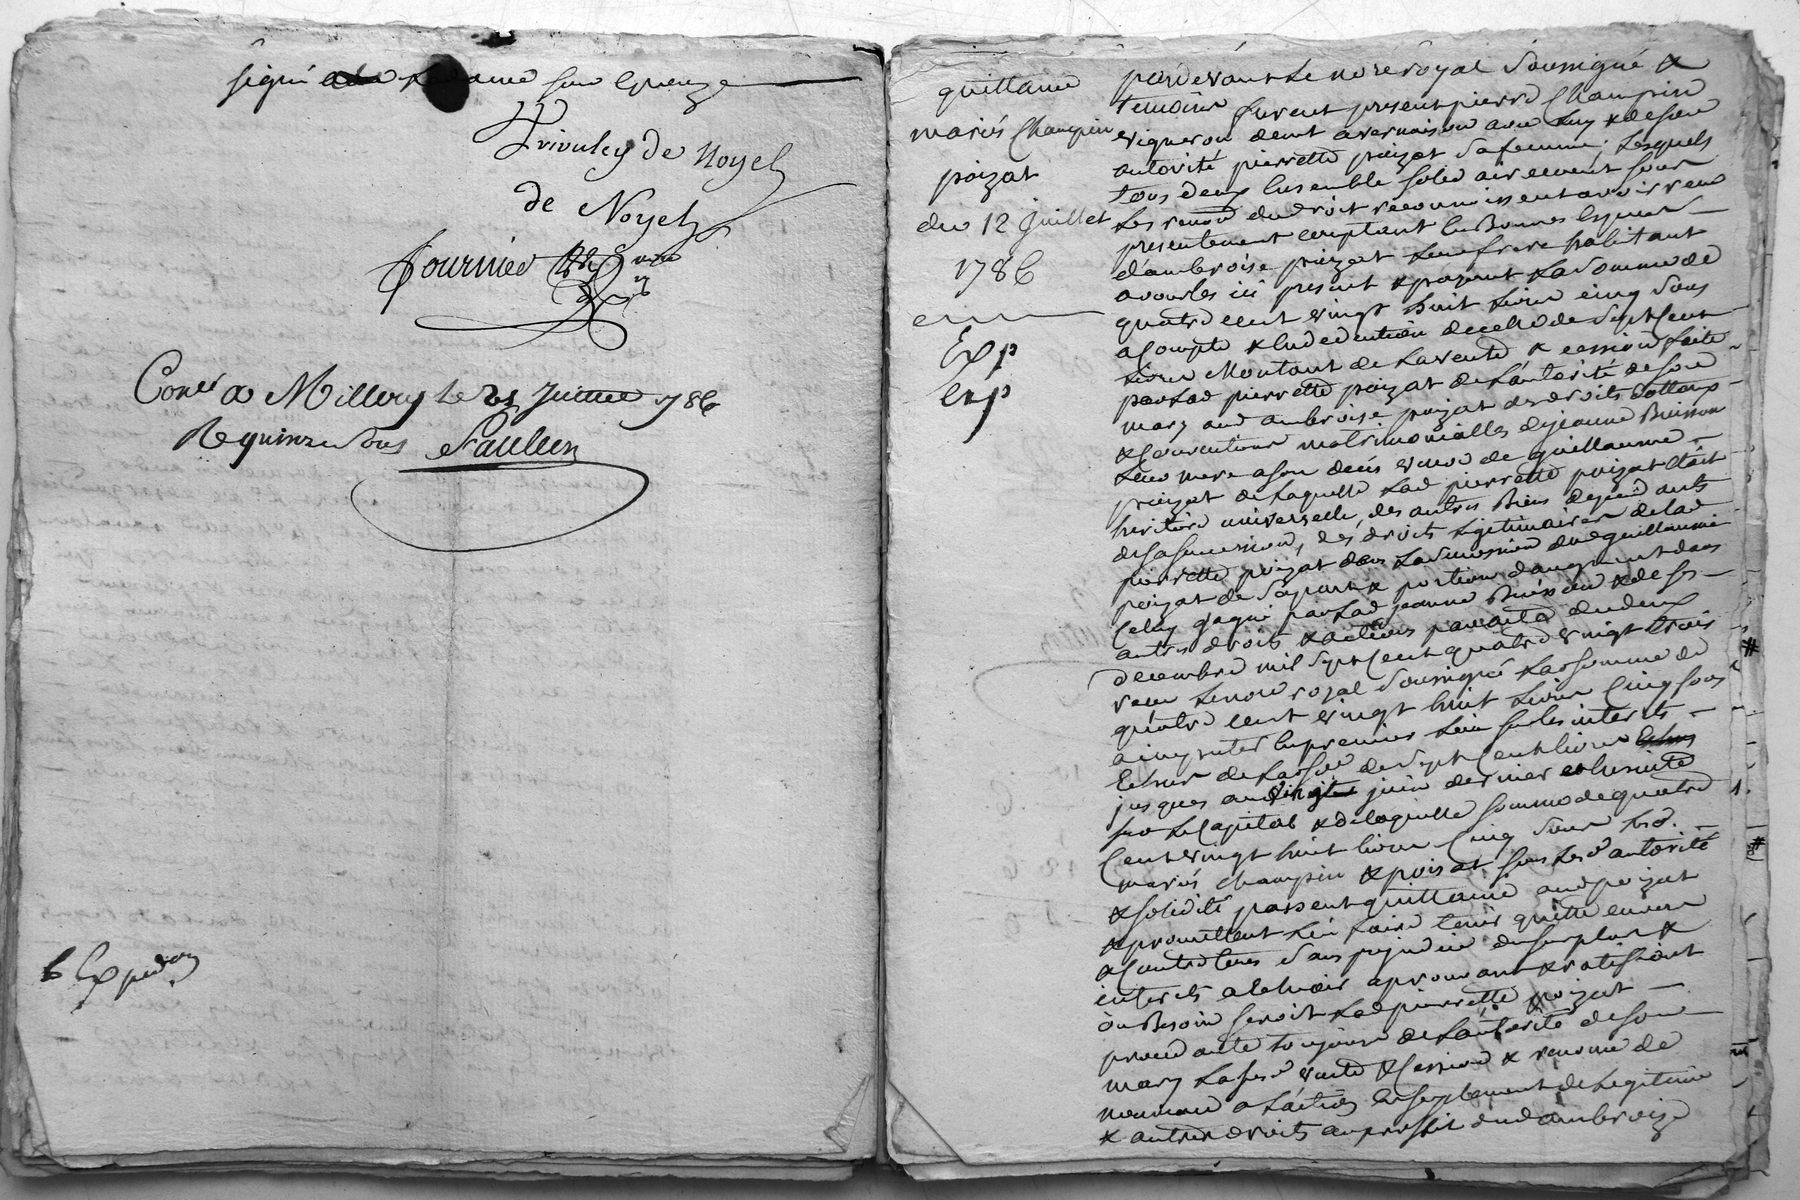 signé
Trivulcy de Noyel
de Noyel
fournier
Con.lé a Millery le 21 Juillet 1786
Re quinze sous Saulien
6 Exped.on
quittance
mariés Champin
poizat
du 12 Juillet
1786
Exp
Exp
pardevant Le no.re royal Soussigné &
temoins furent present pierre Champin
vigneron demt a vernaison avec luy & de son
autorité pierrette poizat Sa femme, Lesquels
tous deux Ensemble solidairement sous
Les renon du droit reconnoissent avoir reçu
presentement comptant En Bonnes Especes
d'ambroise poizat Leur frere habitant
a vourles ici present & payant La Somme de
quatre cent vingt huit Livres cinq Sous
a Compte & En deduction de celle de Sept Cent
Livres Montant de La vente & cession faite
par Lad pierrette poizat de L'autorité de son
mary aud ambroise poizat des droits dottaux
& Conventions matrimonialles de jeanne Buisson
Leur mere a son decés veuve de guillaume
poizat de Laquelle Lad pierrette poizat Etoit
heritiere universelle, des autres Biens dependants
de sa succession, des droits Legitimaires de lad
pierrette poizat dans La Succession dud guillaume
poizat de Sa part & portion d'augment dans
Celuy gagné par Lad jeanne Buisson & de ses
autres droits & actions par acte du deux
decembre mil Sept Cent quatre vingt trois
reçu Le no.re royal Soussigné Laq Somme de
quatre cent vingt huit Livres Cinq Sous
a imputer En premier Lieu sur les interets
Echus de La so.e de Sept Cent livres
jusques au juin dernier & Ensuite
sur Le Capital & de laquelle somme de quatre
Cent vingt huit livres Cinq Sous Lesd.
mariés Champin & poizat sous Les.e autorité
& solidité passent quittance aud poizat
& promettent L'en faire tenir quitte envers
& Contre tous Sans prejudice du surplus &
interets a Echeoir aprouvant & ratifiant
ou Besoin seroit Lad pierrette poizat
procedante toujours de L'autorité de son
mary Lad vente & Cession & renonce de
nouveau a L'action En suplement de Legitime
& autres droits au proffit dud ambroize